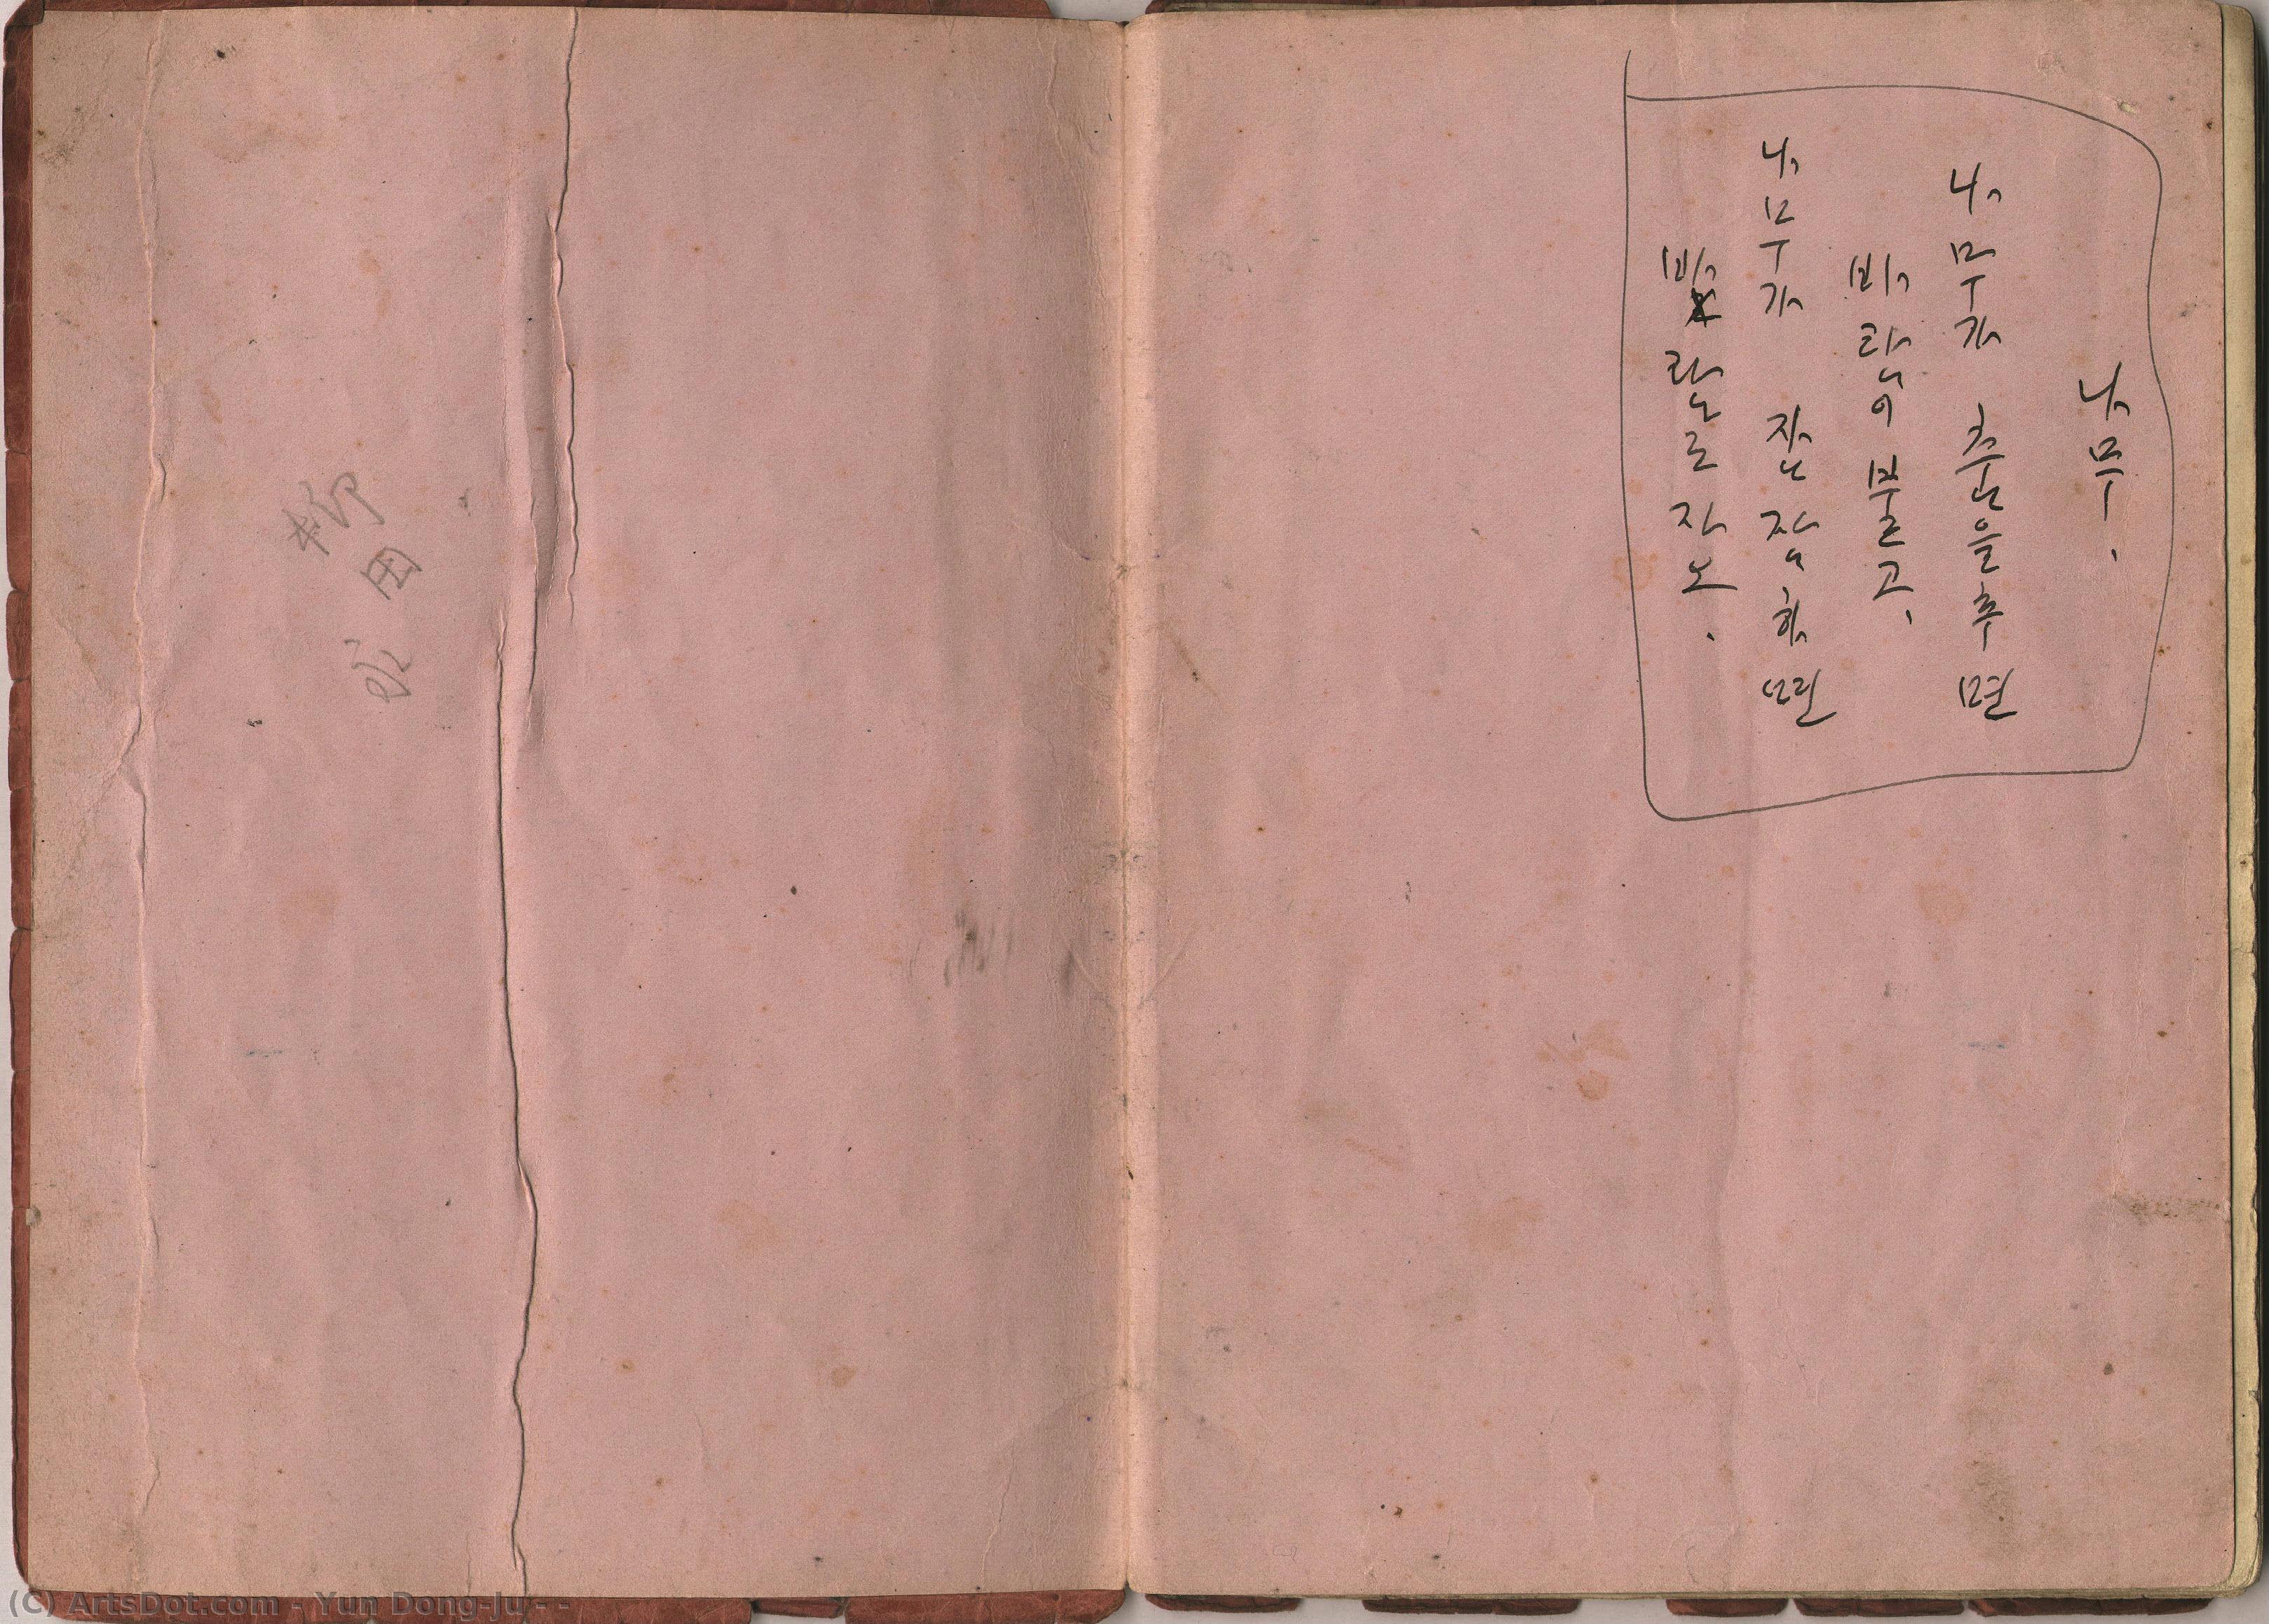 나무.
나무가 춤을추면
바람이 불고,
나무가 잠잠하면
바람도 자오.
(C) ArtsDot.com - Yun Dong-Ju - -